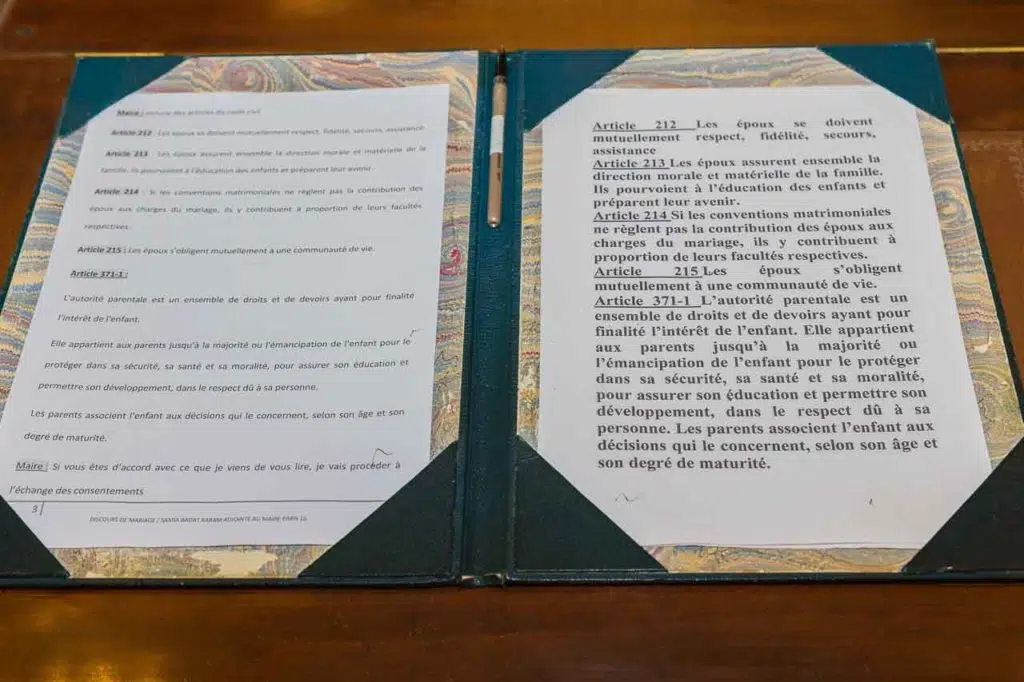 Maire : lecture des articles du code civil
Article 212 : Les époux se doivent mutuellement respect, fidélité, secours, assistance
Article 213 : Les époux assurent ensemble la direction morale et matérielle de la
famille. Ils pourvoient à l'éducation des enfants et préparent leur avenir
Article 214 : Si les conventions matrimoniales ne règlent pas la contribution des
époux aux charges du mariage, ils y contribuent à proportion de leurs facultés
respectives.
Article 215 : Les époux s'obligent mutuellement à une communauté de vie.
Article 371-1 :
L'autorité parentale est un ensemble de droits et de devoirs ayant pour finalité
l'intérêt de l'enfant.
Elle appartient aux parents jusqu'à la majorité ou l'émancipation de l'enfant pour le
protéger dans sa sécurité, sa santé et sa moralité, pour assurer son éducation et
permettre son développement, dans le respect dû à sa personne.
Les parents associent l'enfant aux décisions qui le concernent, selon son âge et son
degré de maturité.
Maire : Si vous êtes d'accord avec ce que je viens de vous lire, je vais procéder à
l'échange des consentements
3|
DISCOURS DE MARIAGE / BARAM ADJOINTE AU MAIRE PARIS
Article 212 Les époux se doivent
mutuellement respect, fidélité, secours,
assistance
Article 213 Les époux assurent ensemble la
direction morale et matérielle de la famille.
Ils pourvoient à l'éducation des enfants et
préparent leur avenir.
Article 214 Si les conventions matrimoniales
ne règlent pas la contribution des époux aux
charges du mariage, ils y contribuent à
proportion de leurs facultés respectives.
Article 215 Les époux s'obligent
mutuellement à une communauté de vie.
Article 371-1 L'autorité parentale est un
ensemble de droits et de devoirs ayant pour
finalité l'intérêt de l'enfant. Elle appartient
aux parents jusqu'à la majorité ou
l'émancipation de l'enfant pour le protéger
dans sa sécurité, sa santé et sa moralité,
pour assurer son éducation et permettre son
développement, dans le respect dû à sa
personne. Les parents associent l'enfant aux
décisions qui le concernent, selon son âge et
son degré de maturité.